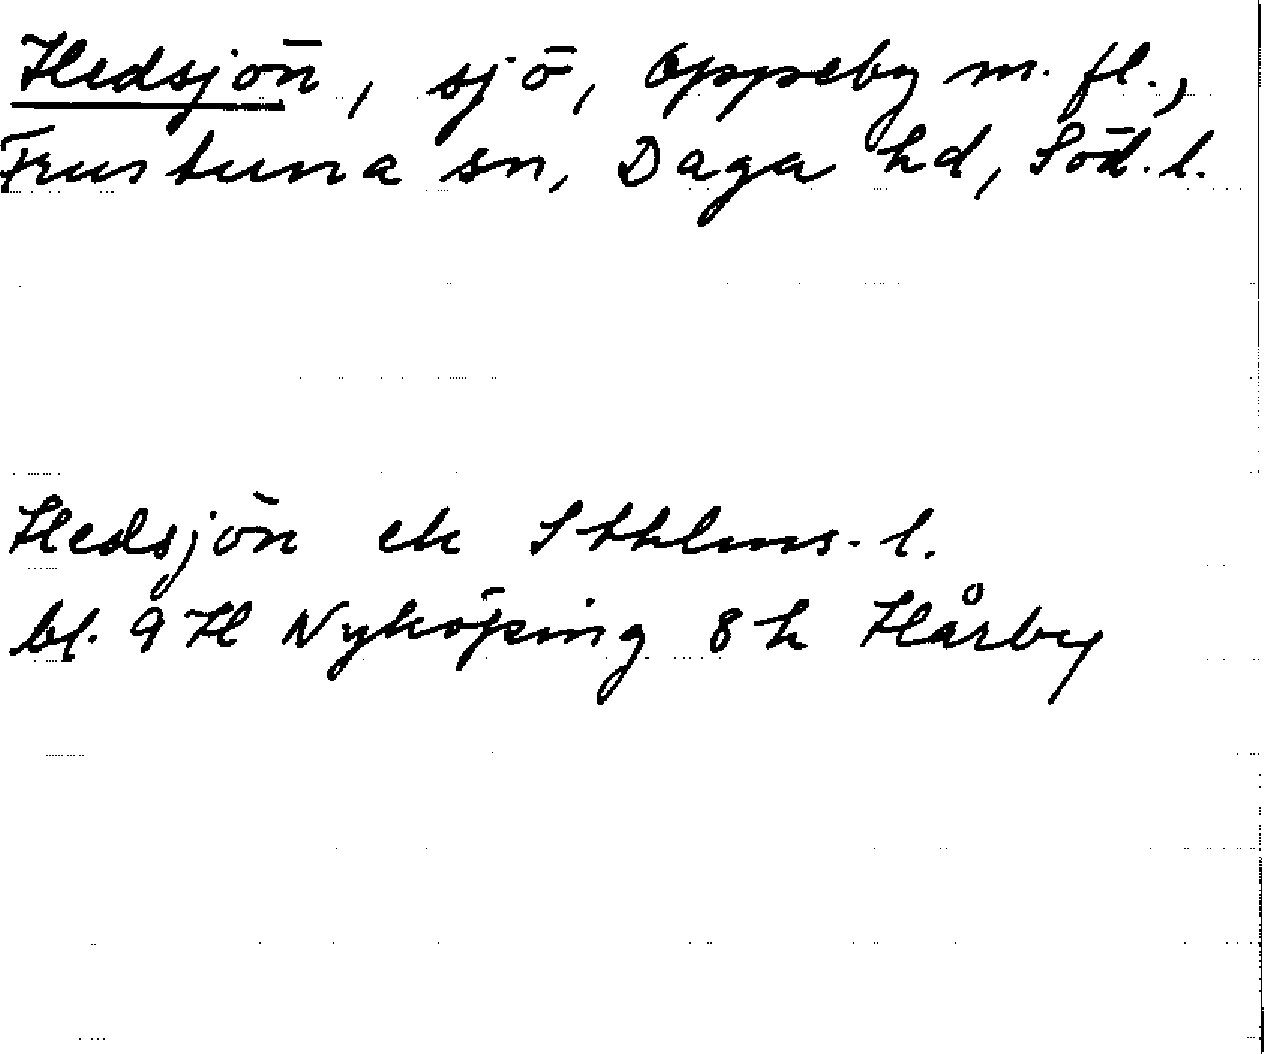 Hedsjön, sjö, Oppeby m. fl.,
Frustuna sn, Daga hd, Söd. l.
Hedsjön ek Sthlms. l.
bl. 9 H Nyköping 8 h Hårby